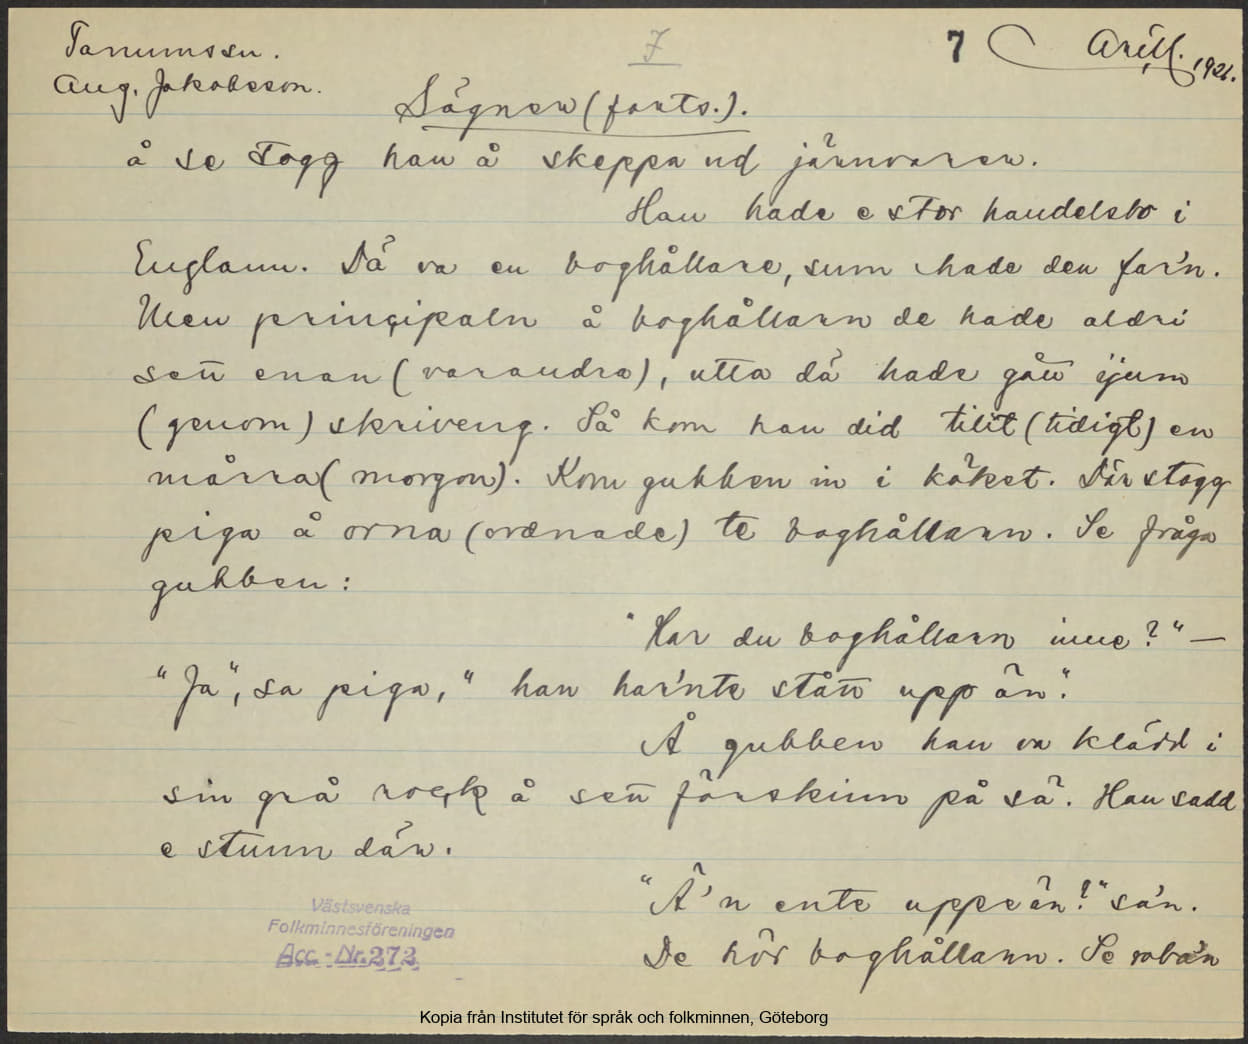 Tanumssn.
Aug. Jakobsson.
7
7
Arill. 1926.
Sägner (forts.).
å se togg han å skeppa ud järnvarer.
Han hade e stor handelsbo i
Englann. Dä va en boghållare, sum hade den far'n.
Men principaln å boghållarn de hade aldri
sett enan (varandra), utta dä hade gått ijum
(genom) skriveng. Så kom han did tilit (tidigt) en
mårra (morgon). Kom gubben in i köket. Där stogg
piga å orna (ordnade) te boghållarn. Se fråga
gubben:
"Har du boghållarn inne?" —
"Ja", sa piga, "han har'nte stått upp än."
Å gubben han va klädd i
sin grå rock å sett förskinn på sä. Han sadd
e stunn där.
"Ä'n ente uppe än?" sa'n.
De hör boghållarn. Se roba'n
Västsvenska
Folkminnesföreningen
Acc.-Nr. 272
Kopia från Institutet för språk och folkminnen, Göteborg